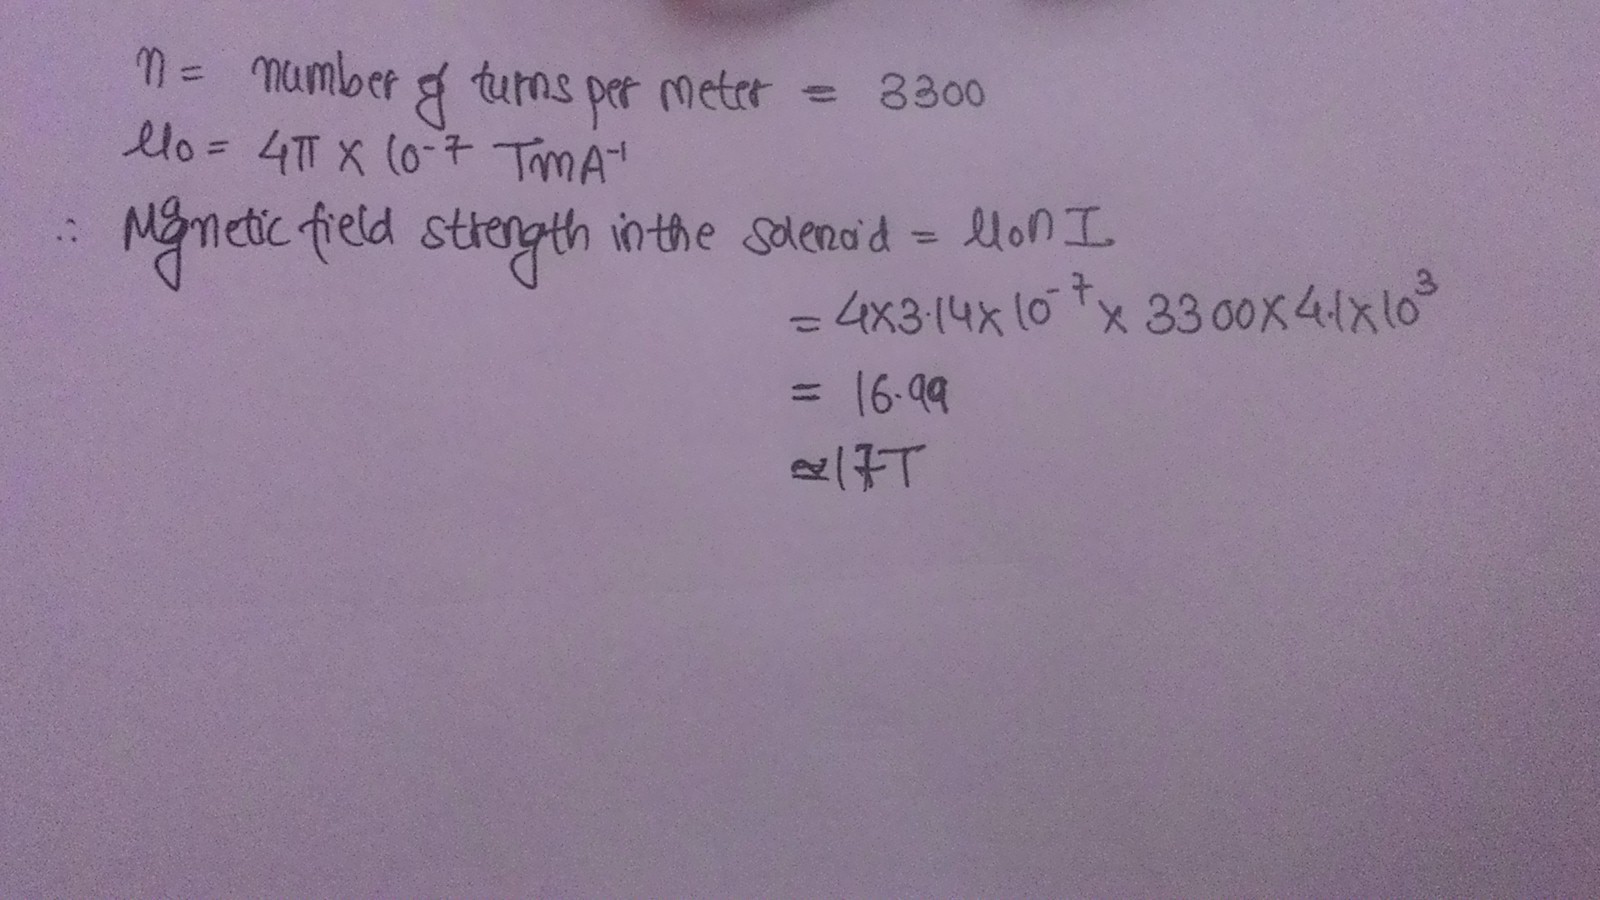 n = number of turns per meter = 3300
μ0 = 4π × 10-7 TmA-1
∴ Magnetic field strength in the solenoid = μ0nI
= 4×3.14×10-7 × 3300×4.1×103
= 16.99
≃17T